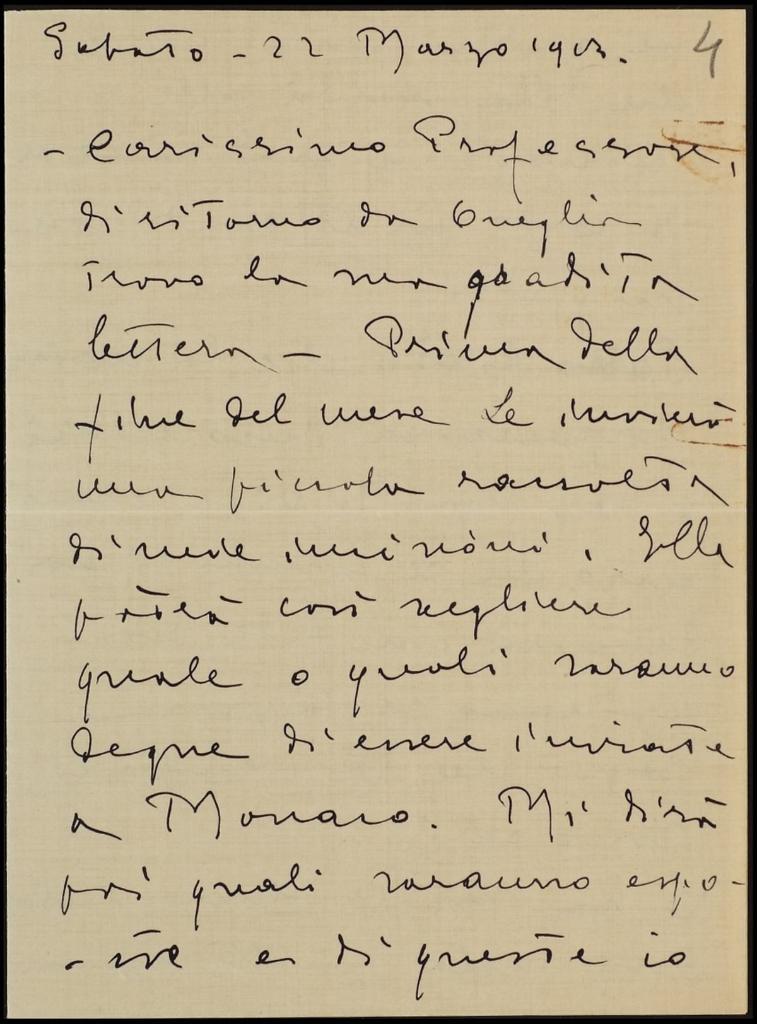 Sabato - 22 Marzo 1913. 4
- Carissimo Professore,
di ritorno da Oneglia
trovo la sua gradita
lettera - Prima della
fine del mese Le invierò
una piccola raccolta
di mie incisioni. Ella
potrà così scegliere
quale o quali saranno
degne di essere inviate
a Monaco. Mi dirà
poi quali saranno espo-
-ste e di queste io